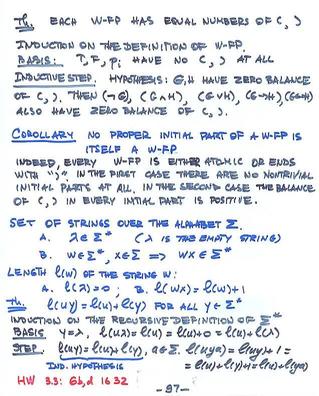 Th. EACH W-FP HAS EQUAL NUMBERS OF (, )
INDUCTION ON THE DEFINITION OF W-FP.
BASIS: T, F, pᵢ HAVE NO (, ) AT ALL
INDUCTIVE STEP. HYPOTHESIS: G, H HAVE ZERO BALANCE
OF (, ). THEN (¬G), (G∧H), (G∨H), (G→H), (G↔H)
ALSO HAVE ZERO BALANCE OF (, ).
COROLLARY NO PROPER INITIAL PART OF A W-FP IS
ITSELF A W-FP
INDEED, EVERY W-FP IS EITHER ATOMIC OR ENDS
WITH ")". IN THE FIRST CASE THERE ARE NO NONTRIVIAL
INITIAL PARTS AT ALL. IN THE SECOND CASE THE BALANCE
OF (, ) IN EVERY INITIAL PART IS POSITIVE.
SET OF STRINGS OVER THE ALPHABET Σ.
A. λ∈Σ* (λ IS THE EMPTY STRING)
B. W∈Σ*, X∈Σ ⇒ WX∈Σ*
LENGTH l(W) OF THE STRING W:
A. l(λ)=0; B. l(WX)=l(W)+1
Th. l(uy)=l(u)+l(y) FOR ALL y∈Σ*
INDUCTION ON THE RECURSIVE DEFINITION OF Σ*
BASIS y=λ, l(uλ)=l(u)=l(u)+0=l(u)+l(λ)
STEP. l(uy)=l(u)+l(y), a∈Σ. l(uya)=l(uy)+1=
IND. HYPOTHESIS =l(u)+l(y)+1=l(u)+l(ya)
HW 3.3: 6b,d 16 32
-97-